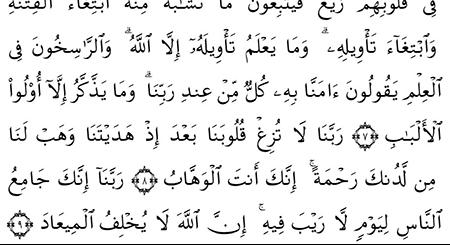 فِى قُلُوبِهِمْ زَيْغٌ فَيَتَّبِعُونَ مَا تَشَٰبَهَ مِنْهُ ٱبْتِغَآءَ ٱلْفِتْنَةِ
وَٱبْتِغَآءَ تَأْوِيلِهِۦ ۗ وَمَا يَعْلَمُ تَأْوِيلَهُۥٓ إِلَّا ٱللَّهُ ۗ وَٱلرَّٰسِخُونَ فِى
ٱلْعِلْمِ يَقُولُونَ ءَامَنَّا بِهِۦ كُلٌّ مِّنْ عِندِ رَبِّنَا ۗ وَمَا يَذَّكَّرُ إِلَّآ أُو۟لُوا۟
ٱلْأَلْبَٰبِ ﴿٧﴾ رَبَّنَا لَا تُزِغْ قُلُوبَنَا بَعْدَ إِذْ هَدَيْتَنَا وَهَبْ لَنَا
مِن لَّدُنكَ رَحْمَةً ۚ إِنَّكَ أَنتَ ٱلْوَهَّابُ ﴿٨﴾ رَبَّنَآ إِنَّكَ جَامِعُ
ٱلنَّاسِ لِيَوْمٍ لَّا رَيْبَ فِيهِ ۚ إِنَّ ٱللَّهَ لَا يُخْلِفُ ٱلْمِيعَادَ ﴿٩﴾